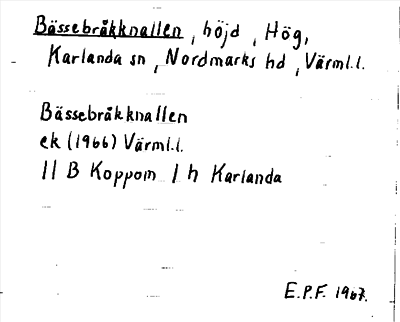 Bässebråkknallen, höjd, Hög,
Karlanda sn, Nordmarks hd, Värml.l.
Bässebråkknallen
ek (1966) Värml.l.
11 B Koppom 1 h Karlanda
E.P.F. 1967.